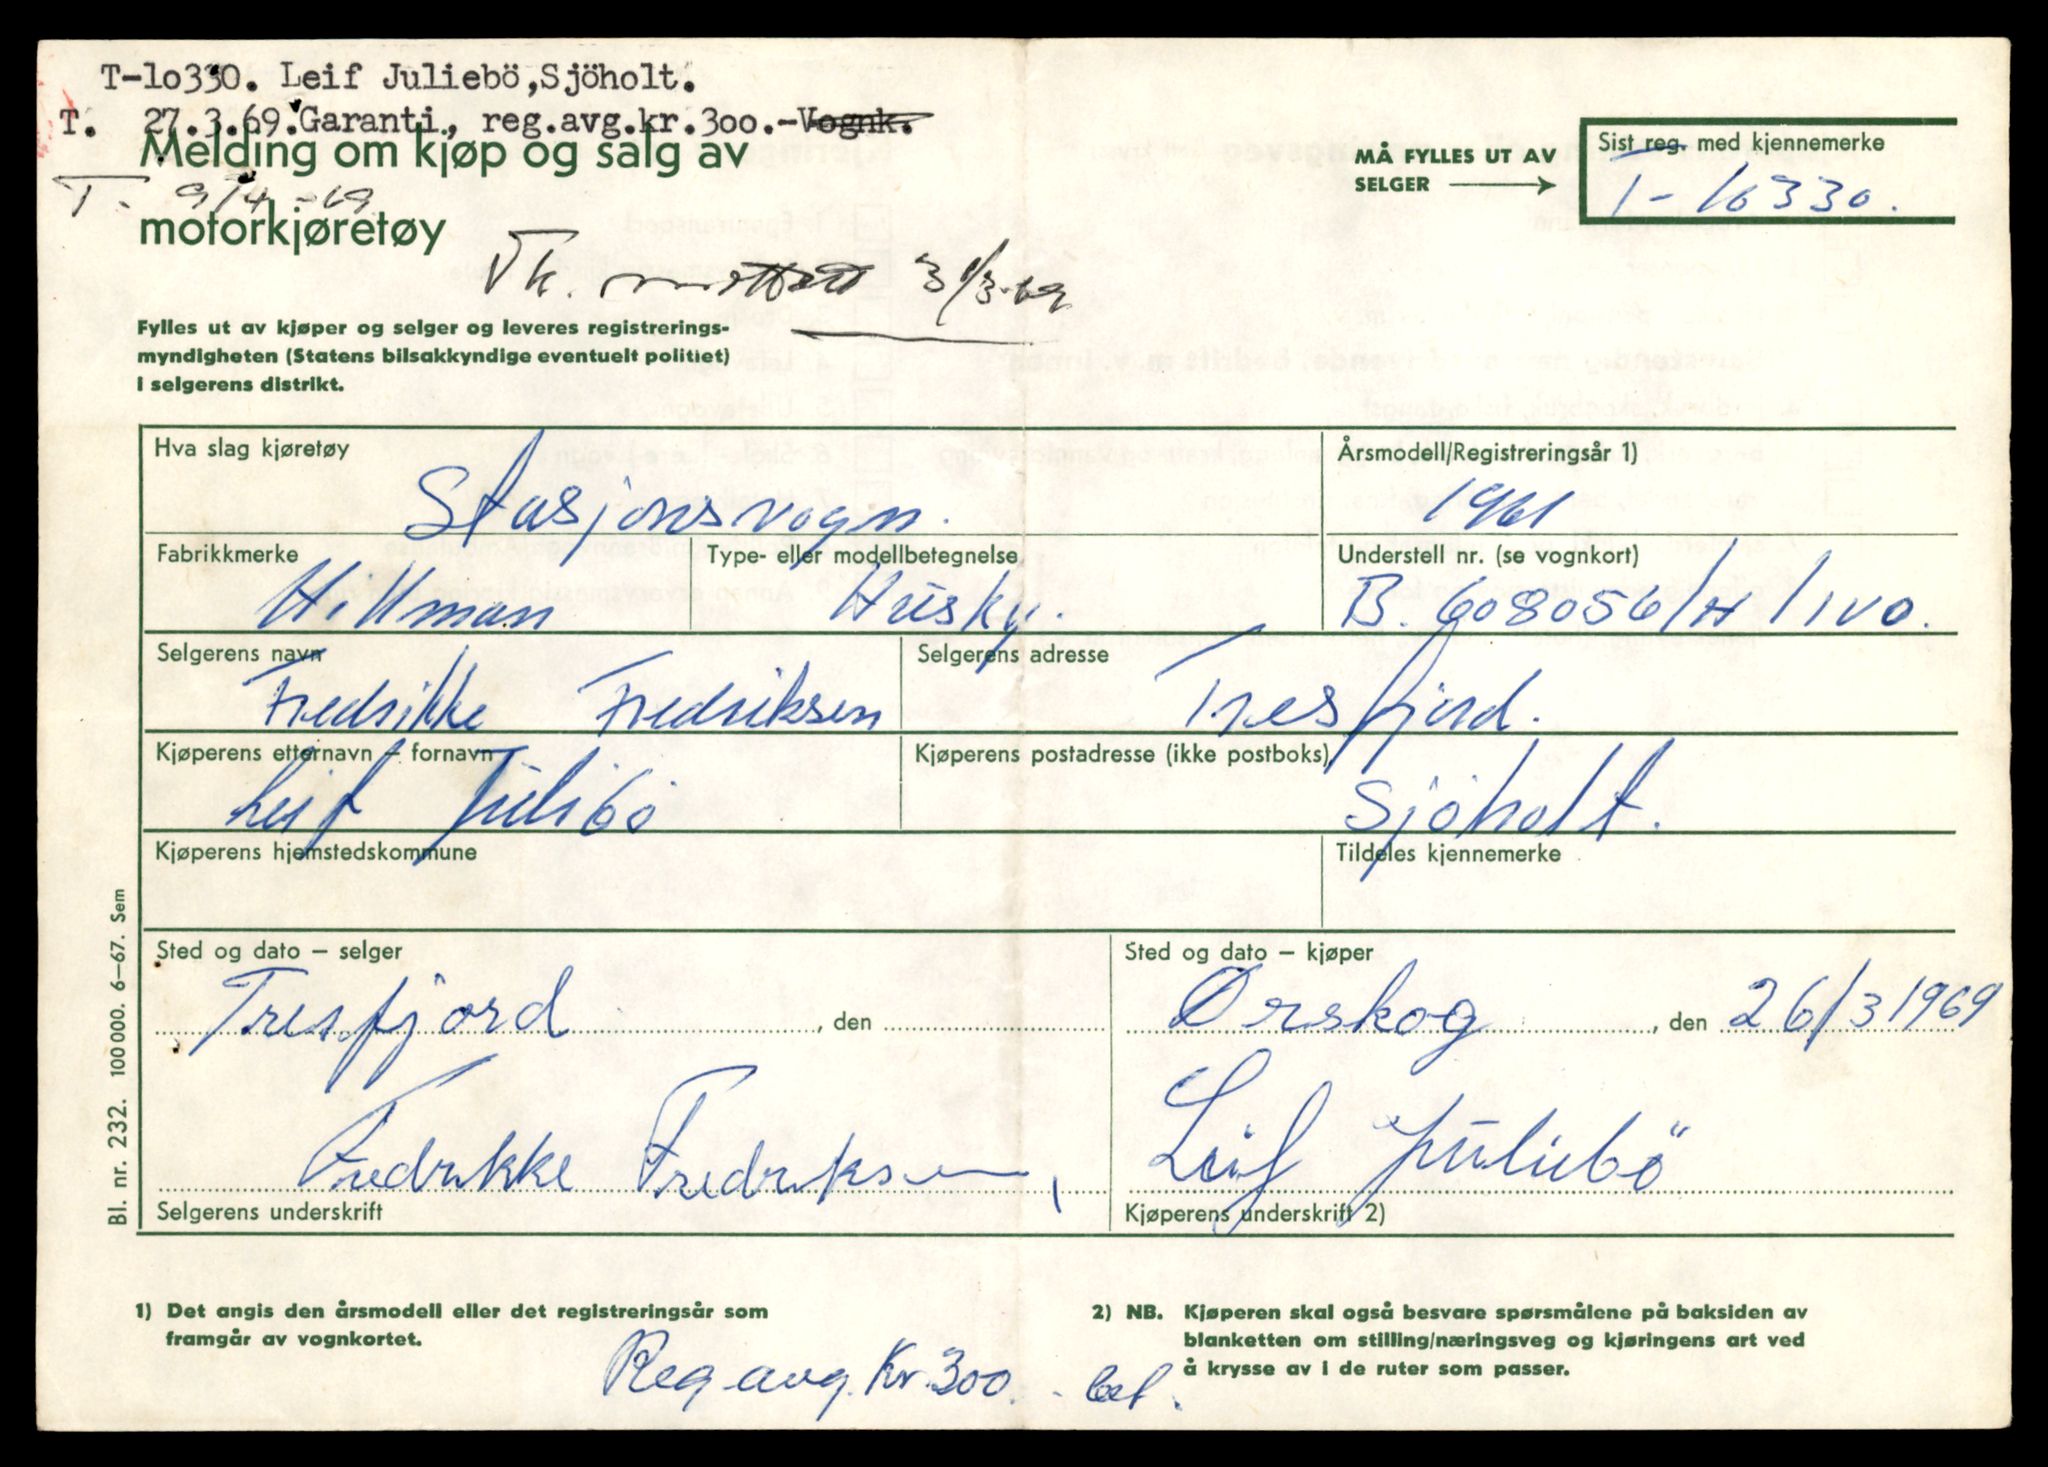 T-lo330. Leif Juliebö,Sjöholt.
T. 27.3.69.Garanti, reg.avg.kr.3oo.-Vognk.
Melding om kjøp og salg av
T. 9/4-69
motorkjøretøy
Vk. mottatt 31/3-69
MÅ FYLLES UT AV
SELGER
Sist reg. med kjennemerke
T-10330.
Fylles ut av kjøper og selger og leveres registrerings-
myndigheten (Statens bilsakkyndige eventuelt politiet)
i selgerens distrikt.
Hva slag kjøretøy
Stasjonsvogn.
Årsmodell/Registreringsår 1)
1961
Fabrikkmerke
Hillman
Type- eller modellbetegnelse
Husky.
Understell nr. (se vognkort)
B. 608056/H/IVO.
Selgerens navn
Fredrikke Fredriksen
Selgerens adresse
Tresfjord.
Kjøperens etternavn – fornavn
Leif Julibö
Kjøperens postadresse (ikke postboks)
Sjöholt.
Kjøperens hjemstedskommune
Tildeles kjennemerke
Sted og dato – selger
Tresfjord , den
Sted og dato – kjøper
Ørskog , den 26/3 1969
Fredrikke Fredriksen
Selgerens underskrift
Leif Juliebö
Kjøperens underskrift 2)
Bl. nr. 232. 100 000. 6–67. Sem
1) Det angis den årsmodell eller det registreringsår som
framgår av vognkortet.
2) NB. Kjøperen skal også besvare spørsmålene på baksiden av
blanketten om stilling/næringsveg og kjøringens art ved
å krysse av i de ruter som passer.
Reg.avg. Kr. 300.- bet.